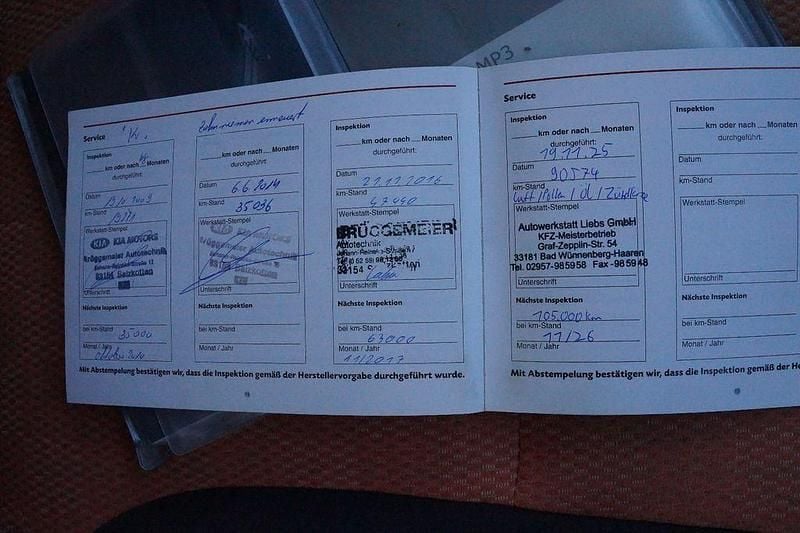 MP3
Service
Zahnriemen erneuert
Inspektion
km oder nach Monaten
durchgeführt:
Datum
km-Stand
Werkstatt-Stempel
KIA KIA MOTORS
Brüggemeier Autotechnik
Salzkotten
Unterschrift
Nächste Inspektion
bei km-Stand
35000
Monat / Jahr
Oktober 2010
km oder nach Monaten
durchgeführt:
Datum
6.6.2014
km-Stand
35036
Werkstatt-Stempel
KIA MOTORS
Brüggemeier Autotechnik
Salzkotten
Unterschrift
Nächste Inspektion
bei km-Stand
Monat / Jahr
Inspektion
km oder nach Monaten
durchgeführt:
Datum
km-Stand
47440
Werkstatt-Stempel
BRÜGGEMEIER
Autotechnik
33154
Unterschrift
Nächste Inspektion
bei km-Stand
63000
Monat / Jahr
11/2017
Mit Abstempelung bestätigen wir, dass die Inspektion gemäß der Herstellervorgabe durchgeführt wurde.
Service
Inspektion
km oder nach Monaten
durchgeführt:
19.11.25
Datum
90574
km-Stand
Luft / Pollen / Öl / Zündkerze
Werkstatt-Stempel
Autowerkstatt Liebs GmbH
KFZ-Meisterbetrieb
Graf-Zepplin-Str. 54
33181 Bad Wünnenberg-Haaren
Tel. 02957-985958 Fax -985948
Unterschrift
Nächste Inspektion
105.000 km
bei km-Stand
11/26
Monat / Jahr
Inspektion
km oder nach Monaten
durchgeführt:
Datum
km-Stand
Werkstatt-Stempel
Unterschrift
Nächste Inspektion
bei km-Stand
Monat / Jahr
Mit Abstempelung bestätigen wir, dass die Inspektion gemäß der